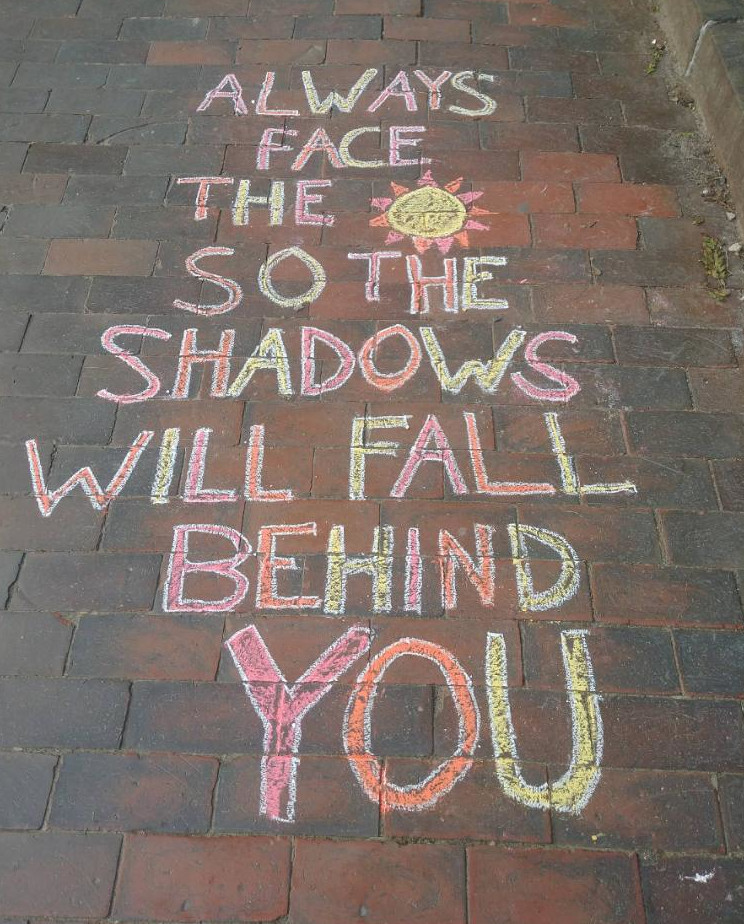 ALWAYS
FACE
THE
SO THE
SHADOWS
WILL FALL
BEHIND
YOU